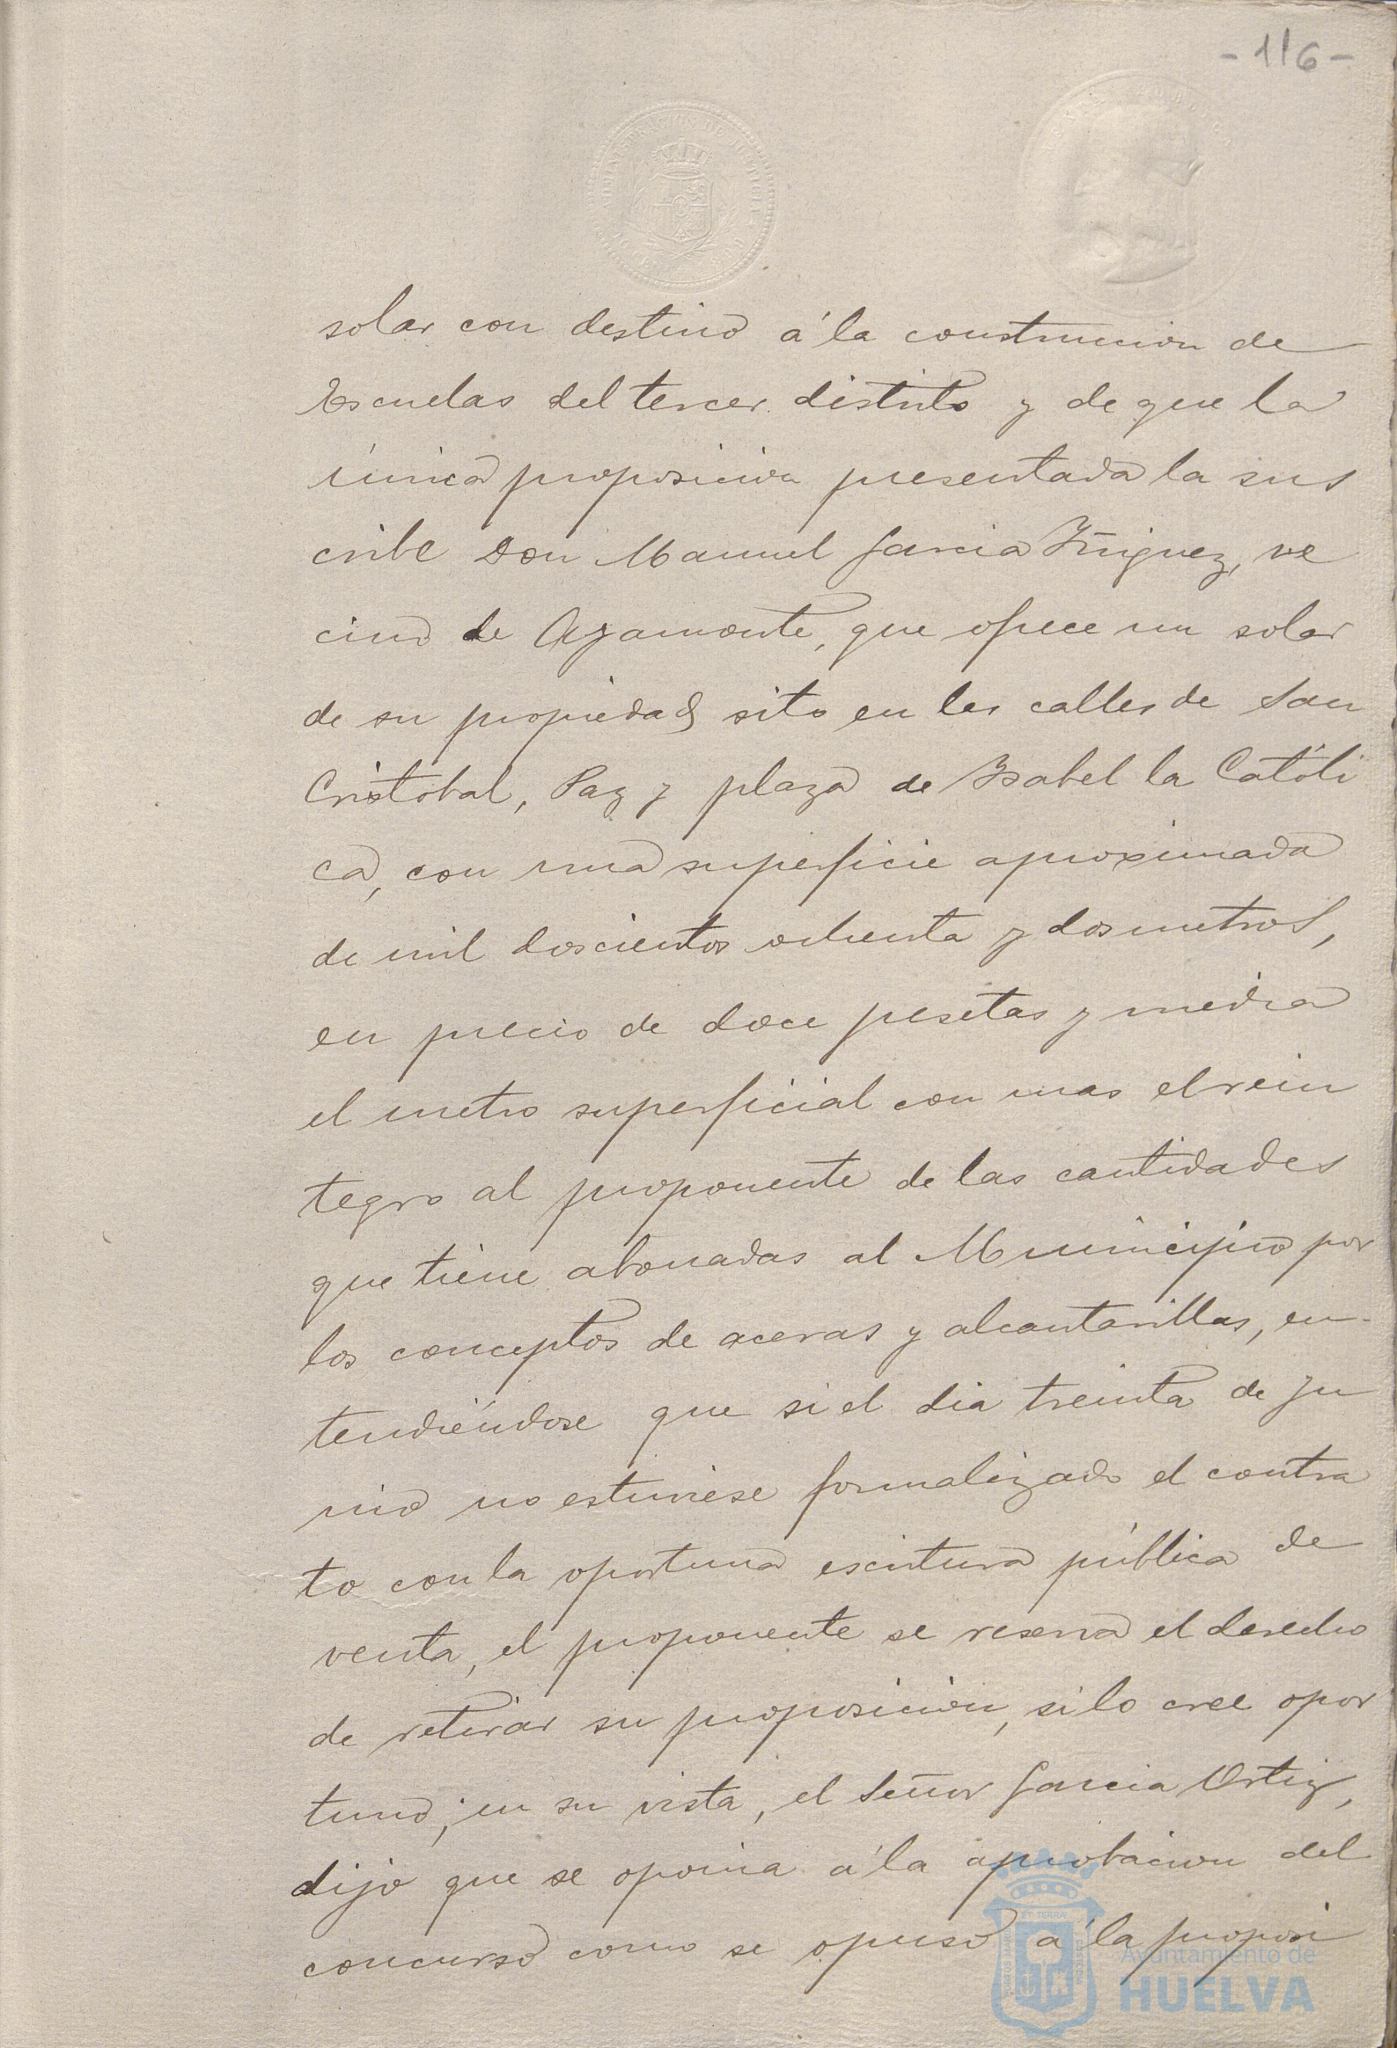 -116-
solar con destino á la construccion de
Escuelas del tercer distrito y de que la
única proposicion presentada la sus
cribe Don Manuel Garcia Iñiguez, ve
cino de Ayamonte, que ofrece un solar
de su propiedad sito en las calles de San
Cristobal, Paz y plaza de Isabel la Católi
ca, con una superficie aproximada
de mil doscientos ochenta y dos metros,
en precio de doce pesetas y media
el metro superficial con mas el rein
tegro al proponente de las cantidades
que tiene abonadas al Municipio por
los conceptos de aceras y alcantarillas, en-
tendiéndose que si el dia treinta de Ju
nio no estuviese formalizado el contra
to con la oportuna escritura pública de
venta, el proponente se reserva el derecho
de retirar su proposicion, si lo cree opor
tuno; en su vista, el Señor Garcia Ortiz,
dijo que se oponia á la aprobacion del
concurso como se opuso á la proposi
Ayuntamiento de
HUELVA